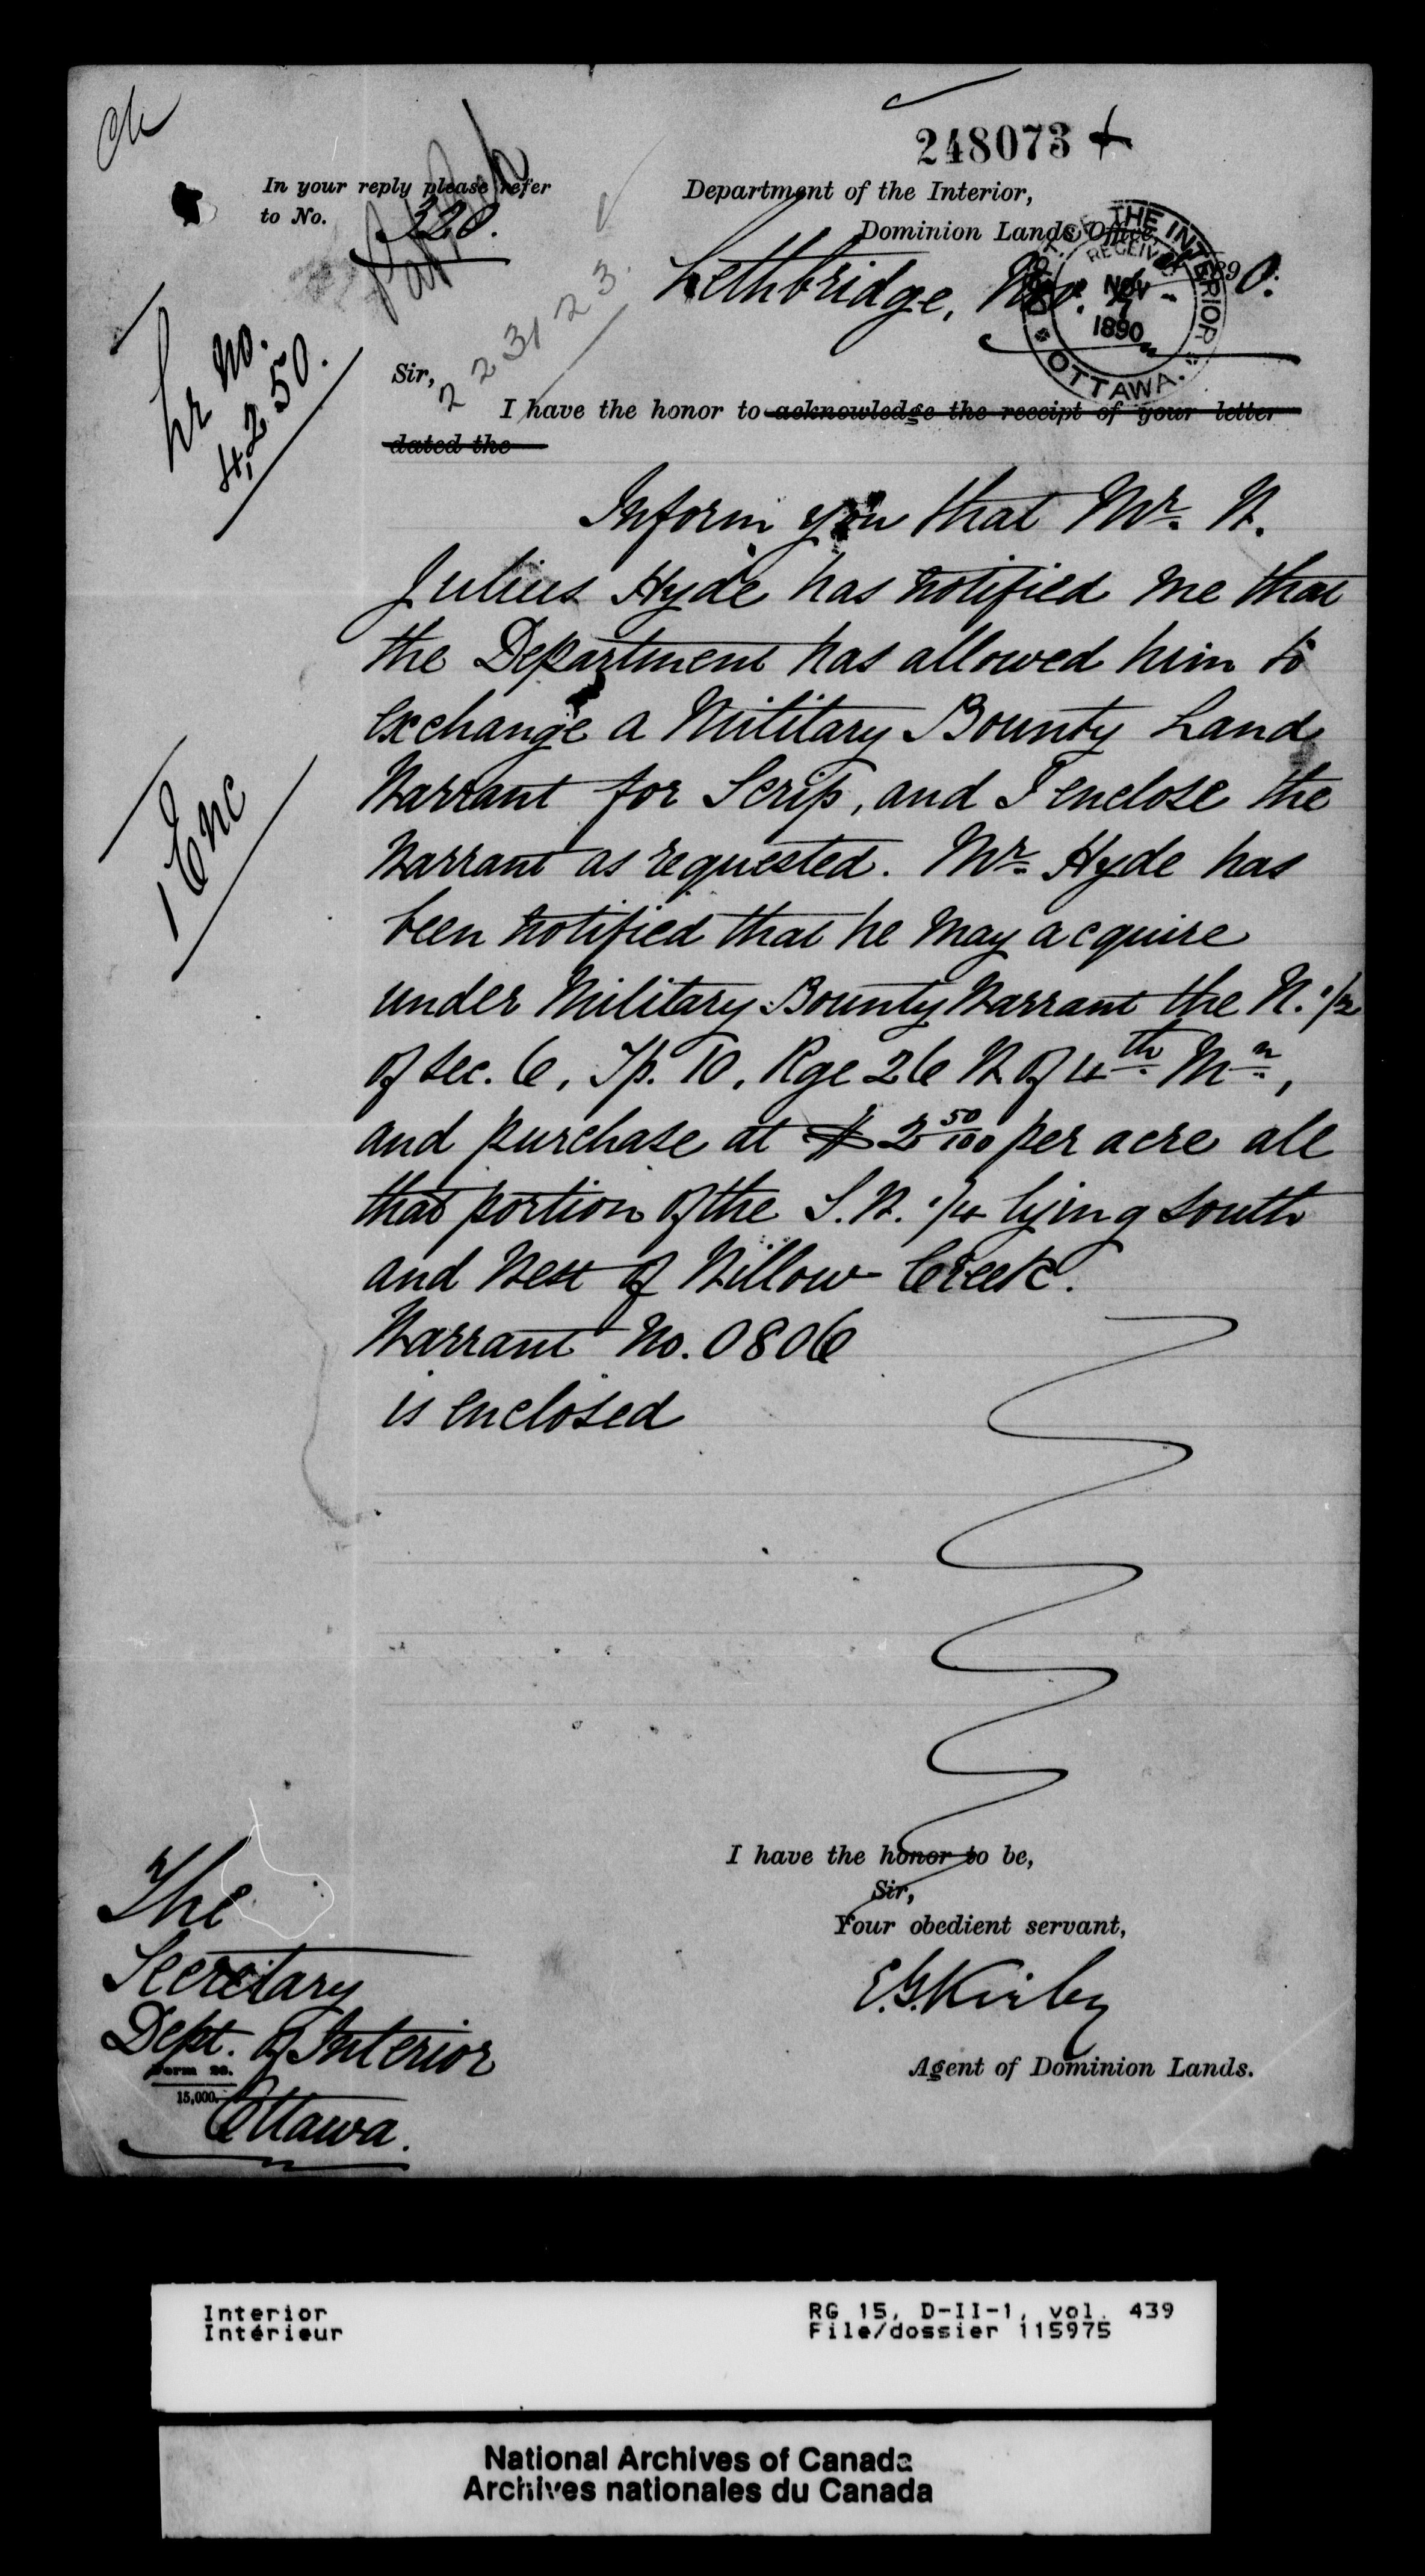 248073
In your reply please refer
to No. 320.
Department of the Interior,
Dominion Lands Office,
Lethbridge, Nov. 1890.
THE INTERIOR
RECEIVED
NOV
7
1890
OTTAWA.
223123.
Lr no.
4,250.
Sir,
I have the honor to acknowledge the receipt of your letter
dated the
Inform you that Mr. W.
Julius Hyde has notified me that
the Department has allowed him to
exchange a Military Bounty Land
Warrant for Scrip, and I enclose the
Warrant as requested. Mr. Hyde has
been notified that he may acquire
under Military Bounty Warrant the N. 1/2
of Sec. 6, Tp. 10, Rge 26 W of 4th Mn,
and purchase at $2 50/100 per acre all
that portion of the S.W. 1/4 lying south
and West of Willow Creek.
Warrant No. 0806
is enclosed
1 Enc
I have the honor to be,
Sir,
Your obedient servant,
E.G. Kirby
Agent of Dominion Lands.
The
Secretary
Dept. of Interior
Ottawa.
Form 20.
15,000.
Interior
Intérieur
RG 15, D-II-1, vol. 439
File/dossier 115975
National Archives of Canada
Archives nationales du Canada